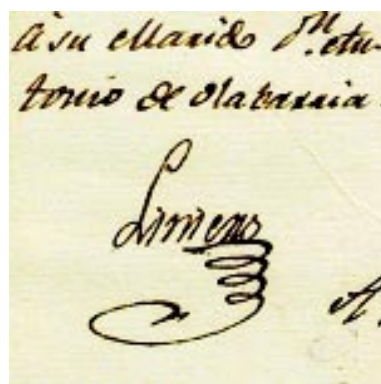 á su Marido Dn. An-
tonio de Olabarria
Limeno
A.